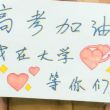 高考加油
我在大学
等你们